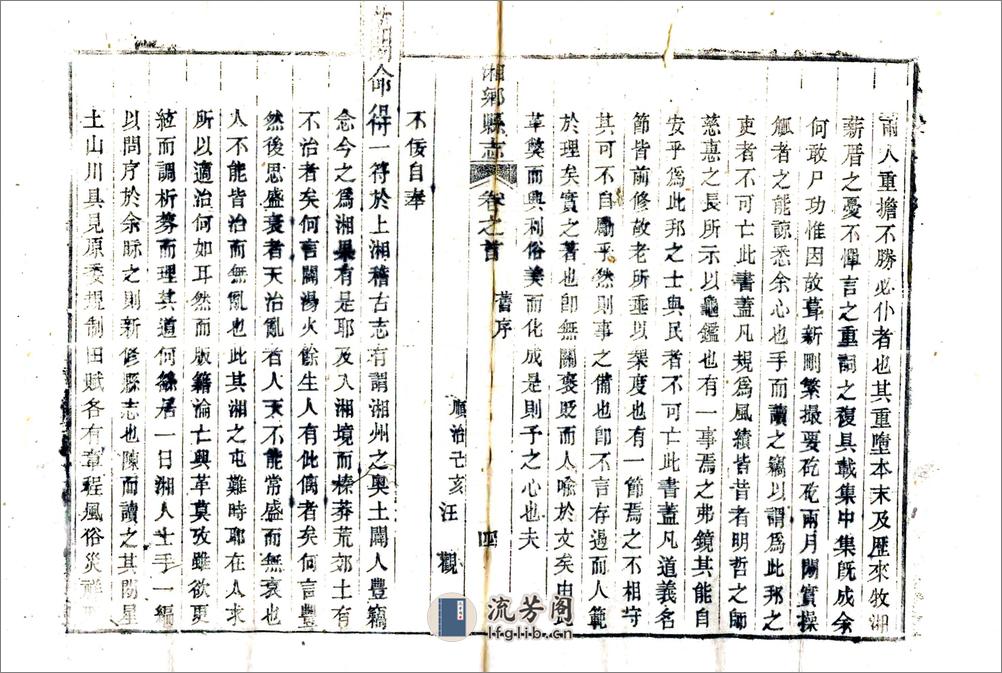 兩人重擔不勝必仆者也其重墮本末及歷來牧湘
薪厝之憂不憚言之重詞之復具載集中集旣成余
何敢尸功惟因故葺新剛繁撮要矻矻兩月閣實操
觚者之能諒悉余心也手而讀之竊以謂爲此邦之
吏者不可亡此書蓋凡規爲風績皆昔者明哲之師
慈惠之長所示以龜鑑也有一事焉之弗鏡其能自
安乎爲此邦之士與民者不可亡此書蓋凡道義名
節皆前修故老所垂以榘度也有一節焉之不相守
其可不自勵乎然則事之備也卽不言存過而人範
於理矣實之著也卽無關褒貶而人喩於文矣由
革獘而興利俗美而化成是則予之心也夫
舊序
湘鄉縣志
卷之首
四
順治己亥
汪觀
不佞自奉
命得一符於上湘稽古志有謂湘州之奧土闢人豐竊
念今之爲湘果有是耶及入湘境而榛莽荒郊土有
不治者矣何言闢湯火餘生人有此傷者矣何言豐
然後思盛衰者天治亂者人天不能常盛而無衰也
人不能皆治而無亂也此其湘之屯難時耶在人求
所以適治何如耳然而版籍淪亡興革莫攷雖欲更
絃而調析棼而理其道何繇居一日湘人士手一編
以問序於余眎之則新修縣志也陳而讀之其間星
土山川具見原委規制田賦各有章程風俗災祥
流芳阁
lfglib.cn